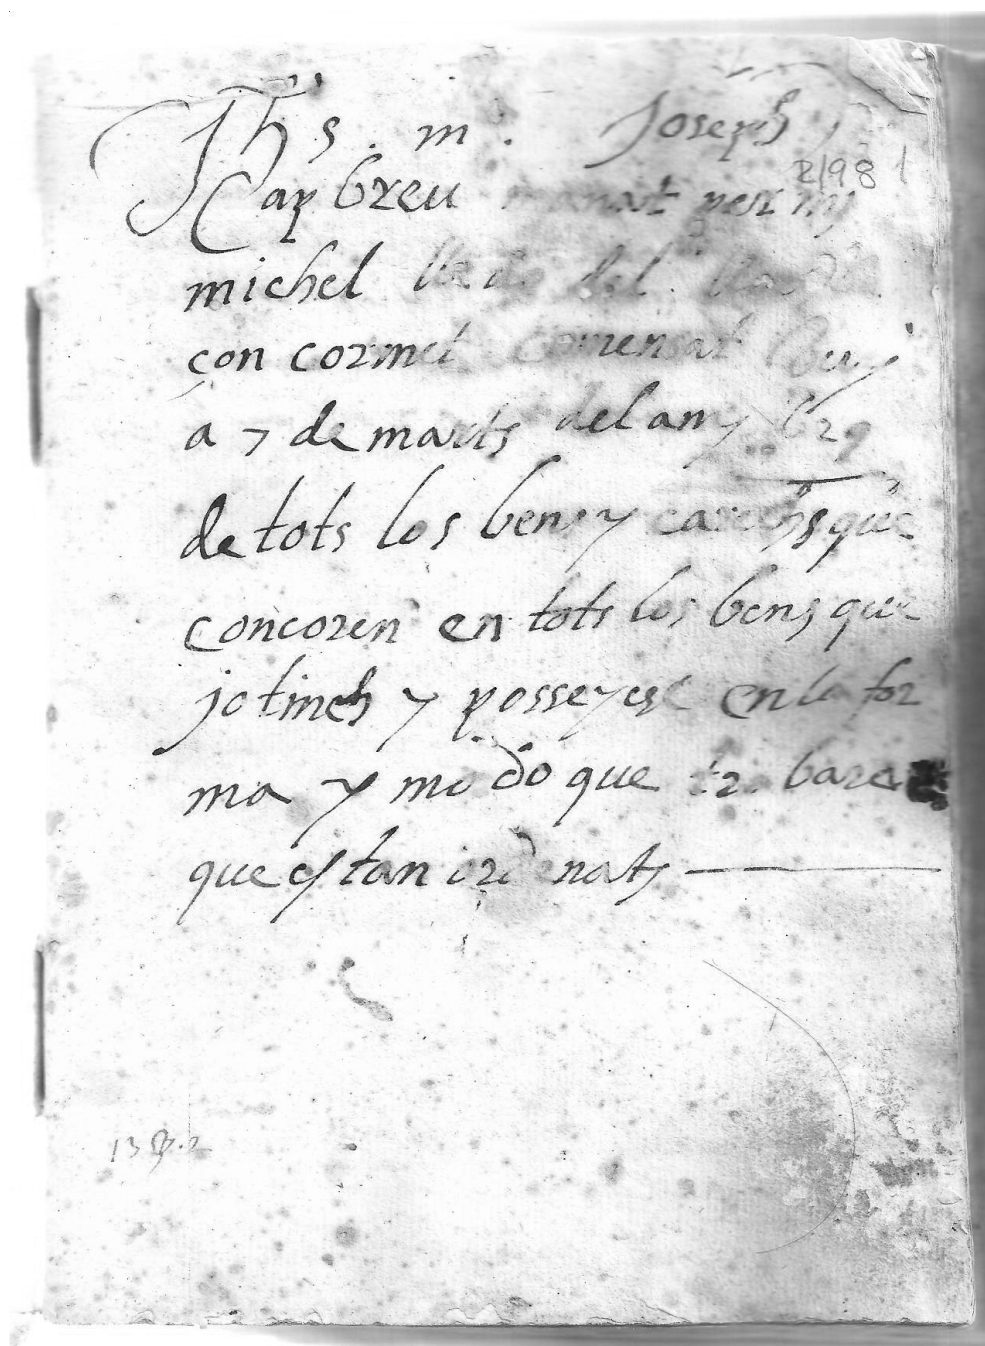 Jhs . m . Joseph
R/98 1
Capbreu manat per my
michel del
con cormet comensat vuy
a 7 de marts del any 629
de tots los bens y carechs que
concoren en tots los bens que
jo tinch y posseyesc en la for
ma y modo que trobara
que estan ordenats